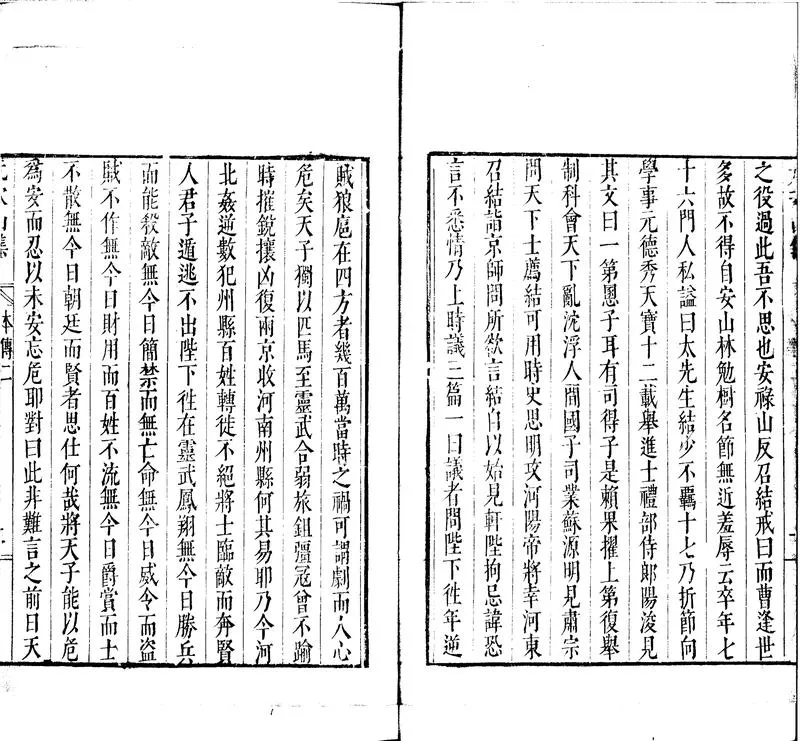 之役過此吾不思也安祿山反召結戒曰而曹逢世
多故不得自安山林勉樹名節無近羞辱云卒年七
十六門人私謚曰太先生結少不羈十七乃折節向
學事元德秀天寶十二載舉進士禮部侍郎陽浚見
其文曰一第慁子耳有司得子是賴果擢上第復舉
制科會天下亂沈浮人間國子司業蘇源明見肅宗
問天下士薦結可用時史思明攻河陽帝將幸河東
召結詣京師問所欲言結自以始見軒陛拘忌諱恐
言不悉情乃上時議三篇一曰議者問陛下徃年逆
賊狼扈在四方者幾百萬當時之禍可謂劇而人心
危矣天子獨以匹馬至靈武合弱旅鉏彊寇曾不踰
時摧銳攘凶復兩京收河南州縣何其易耶乃今河
北姦逆數犯州縣百姓轉徙不絕將士臨敵而奔賢
人君子遁逃不出陛下徃在靈武鳳翔無今日勝兵
而能殺敵無今日簡禁而無亡命無今日威令而盜
賊不作無今日財用而百姓不流無今日爵賞而士
不散無今日朝廷而賢者思仕何哉將天子能以危
為安而忍以未安忘危耶對曰此非難言之前日天
本傳二